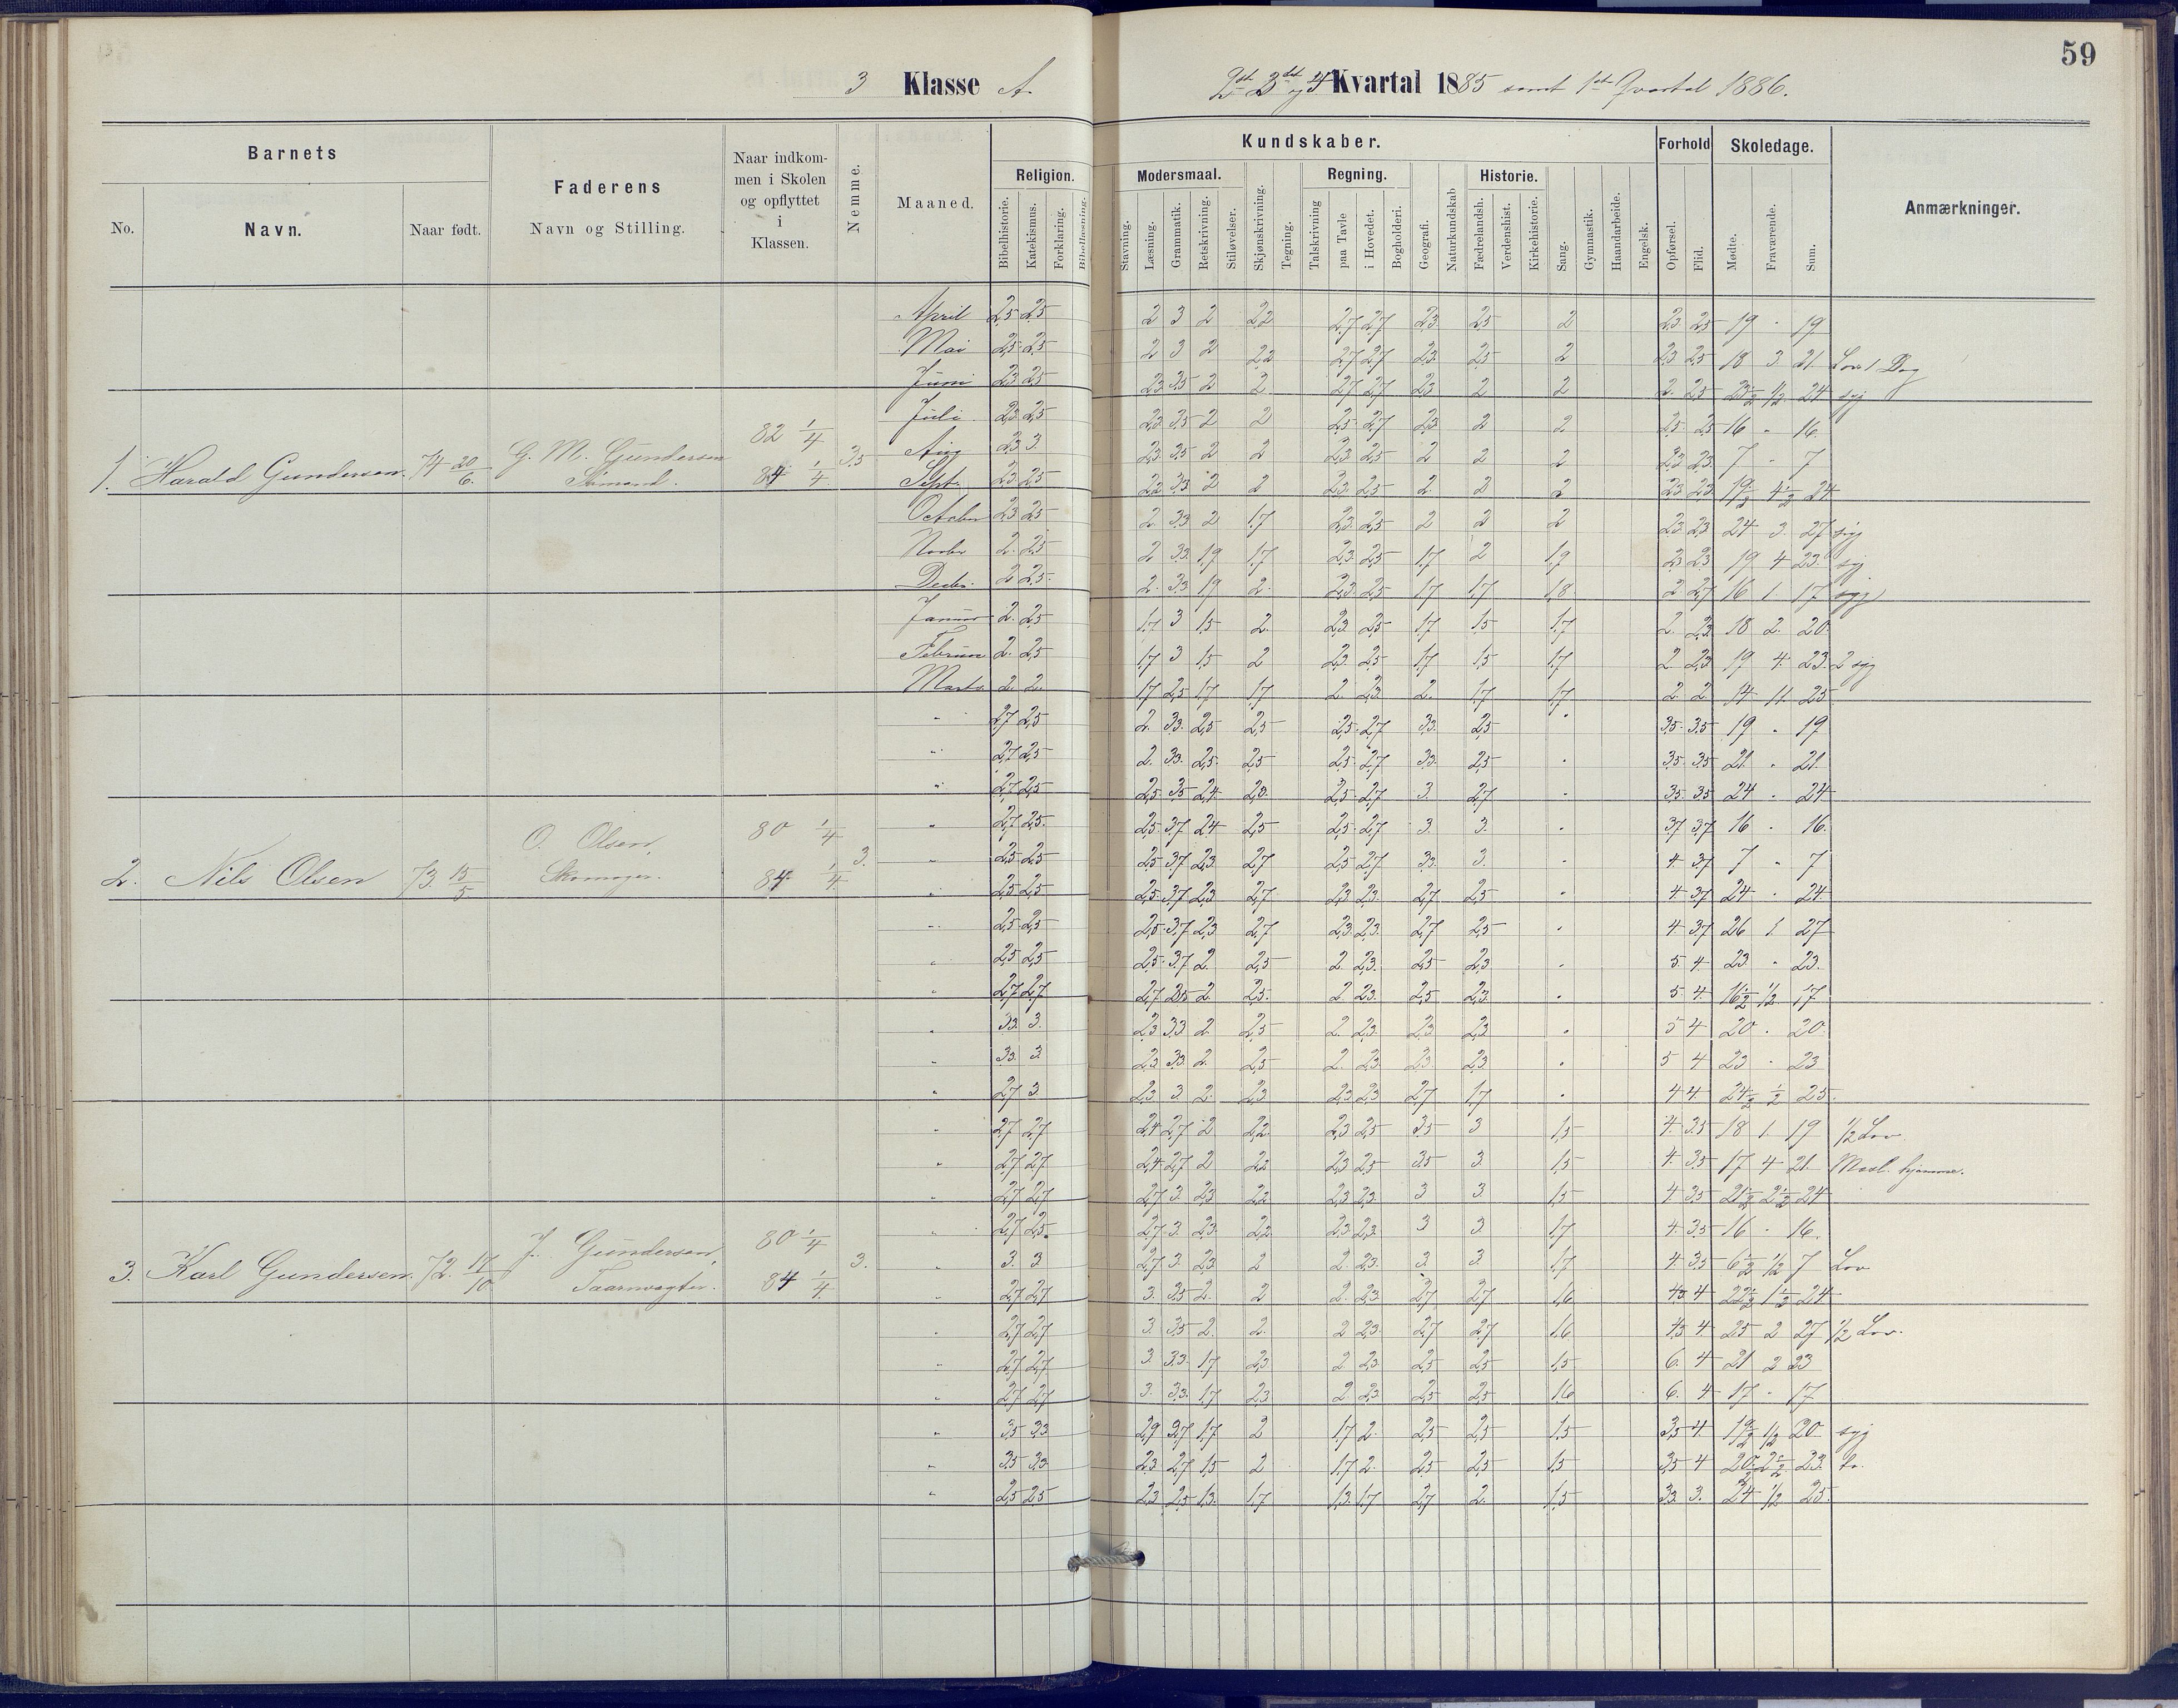 59
3 Klasse A.
2det 3die og 4 Kvartal 1885 samt 1ste Qvartal 1886.
Barnets
No.
Navn.
Naar født.
Faderens
Navn og Stilling.
Naar indkom-
men i Skolen
og opflyttet
i
Klassen.
Nemme.
Maaned.
Kundskaber.
Religion.
Bibelhistorie.
Katekismus.
Forklaring.
Bibellæsning.
Modersmaal.
Stavning.
Læsning.
Grammatik.
Retskrivning.
Stiløvelser.
Skjønskrivning.
Tegning.
Regning.
Talskrivning
paa Tavle
i Hovedet.
Bogholderi.
Geografi.
Naturkundskab
Historie.
Fædrelandsh.
Verdenshist.
Kirkehistorie.
Sang.
Gymnastik.
Haandarbeide.
Engelsk.
Forhold
Opførsel.
Flid.
Skoledage.
Mødte.
Fraværende.
Sum.
Anmærkninger.
1. Harald Gundersen. 74 20/6. G. M. Gundersen Sømand. 82 1/4 84 1/4 3,5
April 2,5 2,5 2 3 2 2,2 2,7 2,7 2,3 2,5 2 2,3 2,5 19 - 19
Mai 2,5 2,5 2 3 2 2,2 2,7 2,7 2,3 2,5 2 2,3 2,5 18 3 21 Lov 1 Dag
Juni 2,3 2,5 2,3 3,5 2 2 2,7 2,7 2,3 2 2 2 2,5 23 1/2 1/2 24 syg
Juli 2,3 2,5 2,3 3,5 2 2 2,5 2,7 2,3 2 2 2,5 2,5 16 - 16
Aug 2,3 3 2,3 3,5 2 2 2,3 2,5 2 2 2 2,3 2,3 7 - 7
Sept. 2,3 2,5 2,2 3,3 2 2 2,3 2,5 2 2 2 2,3 2,3 19 1/2 4 1/2 24
October 2,3 2,5 2 3,3 2 1,7 2,3 2,5 2 2 2 2,3 2,3 24 3 27 syg
Novbr 2 2,5 2 3,3 1,9 1,7 2,3 2,5 1,7 2 1,9 2,3 2,3 19 4 23 syg
Decbr. 2 2,5 2 3,3 1,9 2 2,3 2,5 1,7 1,7 1,8 2 2,7 16 1 17 syg
Januar 2 2,5 1,7 3 1,5 2 2,3 2,5 1,7 1,5 1,7 2 2,3 18 2 20
Februar 2 2,5 1,7 3 1,5 2 2,3 2,5 1,7 1,5 1,7 2 2,3 19 4 23 2 syg
Marts 2 2 1,7 2,5 1,7 1,7 2 2,3 2 1,7 1,7 2 2 14 11 25
2. Nils Olsen 73 15/5 O. Olsen, Skomager. 80 1/4 84 1/4 3.
" 2,7 2,5 2 3,3 2,5 2,5 2,5 2,7 3,3 2,5 - 3,5 3,5 19 - 19
" 2,7 2,5 2 3,3 2,5 2,5 2,5 2,7 3,3 2,5 - 3,5 3,5 21 - 21
" 2,7 2,5 2,5 3,5 2,4 2,3 2,5 2,7 3 2,7 - 3,5 3,5 24 - 24
" 2,7 2,5 2,5 3,7 2,4 2,5 2,5 2,7 3 3 - 3,7 3,7 16 - 16
" 2,5 2,5 2,5 3,7 2,3 2,7 2,5 2,7 3,3 3 - 4 3,7 7 - 7
" 2,5 2,5 2,5 3,7 2,3 2,7 2,3 2,3 2,7 2,5 - 4 3,7 24 - 24
" 2,5 2,5 2,5 3,7 2,3 2,7 2,3 2,3 2,7 2,5 - 4 3,7 26 1 27
" 2,5 2,5 2,5 3,7 2 2,5 2 2,3 2,5 2,3 - 5 4 23 - 23
" 2,7 2,7 2,7 3,5 2 2,5 2 2,3 2,5 2,3 - 5 4 16 1/2 1/2 17
" 3,3 3 2,3 3,3 2 2,5 2 2,3 2,3 2,3 - 5 4 20 - 20
" 3,3 3 2,3 3,3 2 2,5 2 2,3 2,3 2,3 - 5 4 23 - 23
" 2,7 3 2,3 3 2 2,3 2,3 2,3 2,7 1,7 - 4 4 24 1/2 1/2 25
3. Karl Gundersen. 72 17/10 J. Gundersen, Taarnvagter. 80 1/4 84 1/4 3.
" 2,7 2,7 2,4 2,7 2 2,2 2,3 2,5 3,5 3 1,5 4 3,5 18 1 19 1/2 Lov
" 2,7 2,7 2,4 2,7 2 2,2 2,3 2,5 3,5 3 1,5 4 3,5 17 4 21 hjemme.
" 2,7 2,7 2,7 3 2,3 2,2 2,3 2,3 3 3 1,5 4 3,5 21 1/2 2 1/2 24
" 2,7 2,5 2,7 3 2,3 2,2 2,3 2,3 3 3 1,7 4 3,5 16 - 16
" 3 3 2,7 3 2,3 2 2 2,3 3 3 1,7 4 3,5 6 1/2 1/2 7 Lov
" 2,7 2,7 3 3,5 2 2 2 2,3 2,7 2,7 1,6 4,3 4 22 1/2 1 1/2 24
" 2,7 2,7 3 3,5 2 2 2 2,3 2,7 2,7 1,6 4,3 4 25 2 27 1/2 Lov.
" 2,7 2,7 3 3,3 1,7 2,3 2 2,3 2,5 2,5 1,5 6 4 21 2 23
" 2,7 2,7 3 3,3 1,7 2,3 2 2,3 2,5 2,5 1,6 6 4 17 - 17
" 3,5 3,3 2,9 3,7 1,7 2 1,7 2 2,5 2,5 1,5 3,5 4 19 1/2 1/2 20 syg
" 3,5 3,3 2,3 2,7 1,5 2 1,7 2 2,5 2,5 1,5 3,5 4 20 1/2 2 1/2 23
" 2,5 2,5 2,3 2,5 1,3 1,7 1,3 1,7 2,7 2 1,5 3,3 3 24 1/2 25